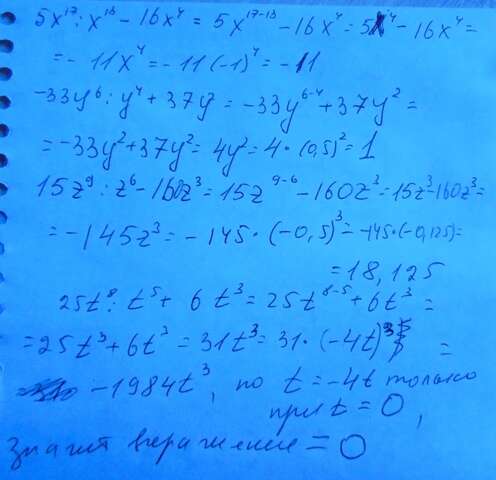 5x¹⁷ : x¹³ - 16x⁴ = 5x¹⁷⁻¹³ - 16x⁴ = 5x⁴ - 16x⁴ =
= - 11x⁴ = - 11(-1)⁴ = - 11
-33y⁶ : y⁴ + 37y² = -33y⁶⁻⁴ + 37y² =
= -33y² + 37y² = 4y² = 4 · (0,5)² = 1
15z⁹ : z⁶ - 160z³ = 15z⁹⁻⁶ - 160z³ = 15z³ - 160z³ =
= - 145z³ = - 145 · (-0,5)³ = -145 · (-0,125) =
= 18,125
25t⁸ : t⁵ + 6t³ = 25t⁸⁻⁵ + 6t³ =
= 25t³ + 6t³ = 31t³ = 31 · (-4t)³ =
= - 1984t³, но t = -4t только
при t = 0,
значит выражение = 0